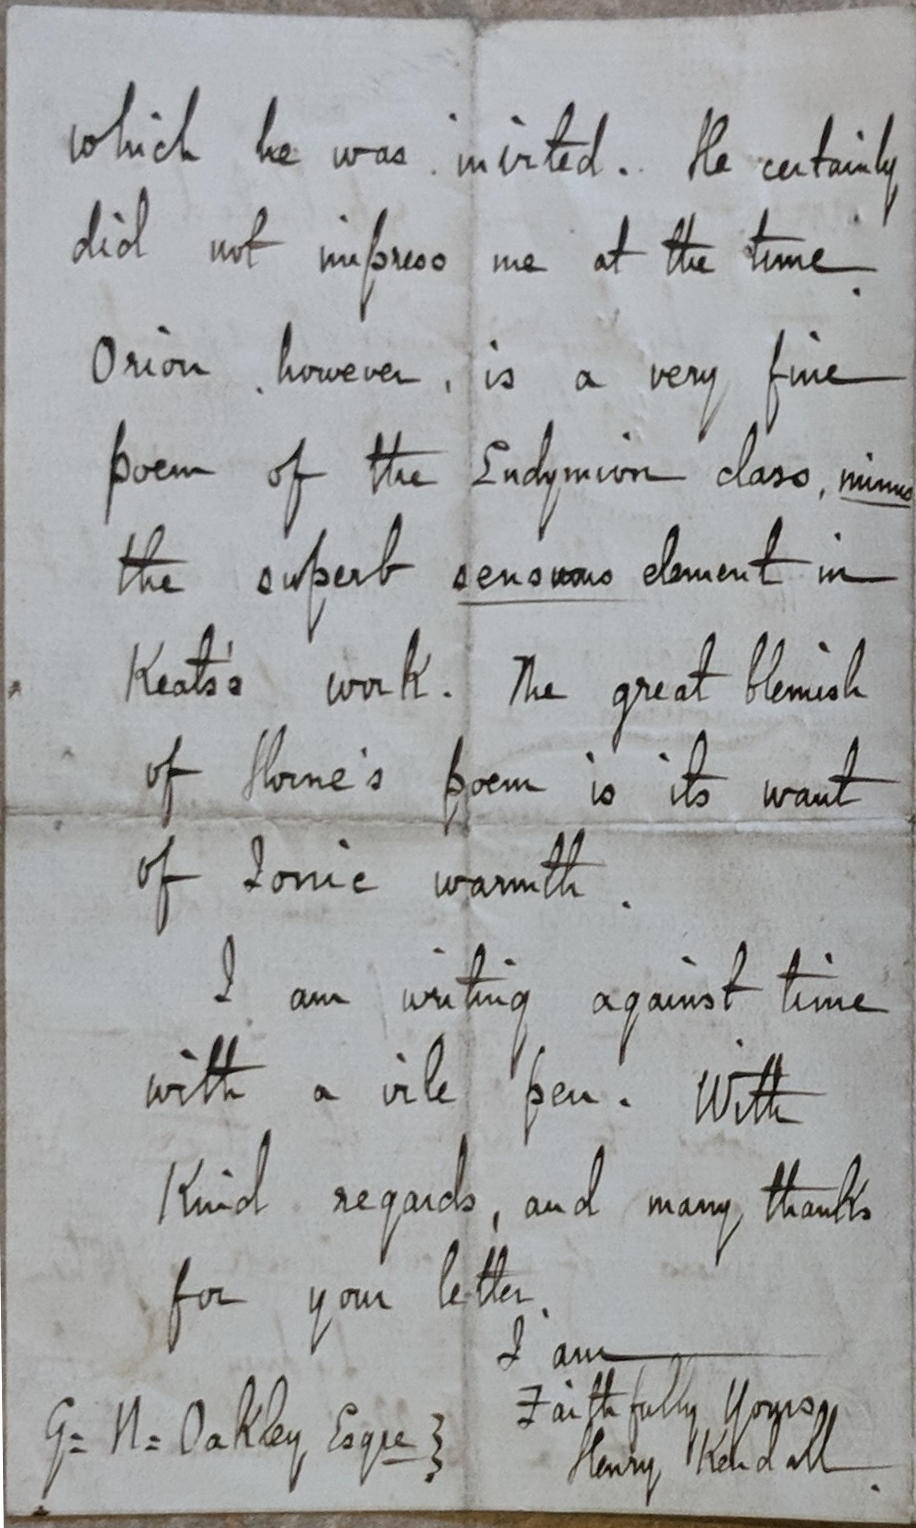 which he was invited. He certainly
did not impress me at the time.
Orion, however, is a very fine
poem of the Endymion class, minus
the superb sensuous element in
Keats's work. The great blemish
of Horne's poem is its want
of Ionic warmth.
I am writing against time
with a vile pen. With
Kind regards, and many thanks
for your letter,
I am
Faithfully Yours,
Henry Kendall.
G= N= Oakley Esqre }